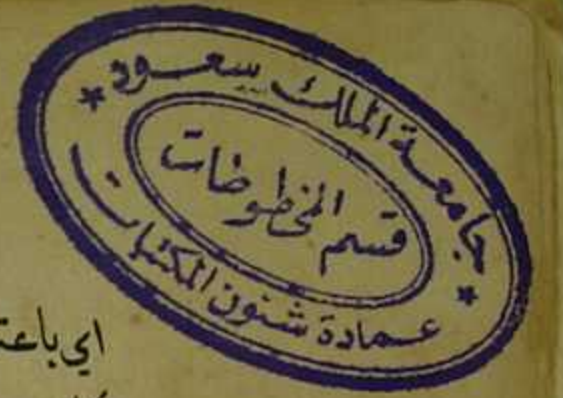 جامعة الملك سعود
قسم المخطوطات
عمادة شئون المكتبات
اي باعت